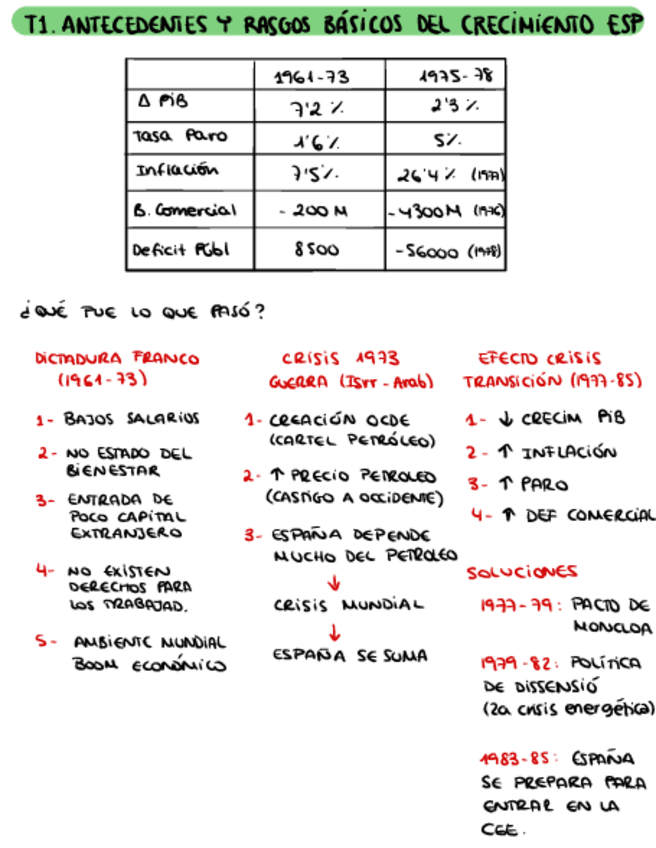 T1. ANTECEDENTES Y RASGOS BÁSICOS DEL CRECIMIENTO ESP
1961-73 1975-78
Δ PiB 7'2 % 2'3 %
Tasa Paro 1'6 % 5%
Inflación 7'5% 26'4 % (1977)
B. Comercial - 200 M -4300M (1976)
Deficit Públ 8500 -56000 (1978)
¿QUÉ FUE LO QUE PASÓ?
DICTADURA FRANCO
(1961-73)
1- BAJOS SALARIOS
2- NO ESTADO DEL
BIENESTAR
3- ENTRADA DE
POCO CAPITAL
EXTRANJERO
4- NO EXISTEN
DERECHOS PARA
LOS TRABAJAD.
5- AMBIENTE MUNDIAL
BOOM ECONÓMICO
CRISIS 1973
GUERRA (Isrr - Arab)
1- CREACIÓN OCDE
(CARTEL PETRÓLEO)
2- ↑ PRECIO PETROLEO
(CASTIGO A OCCIDENTE)
3- ESPAÑA DEPENDE
MUCHO DEL PETROLEO
↓
CRISIS MUNDIAL
↓
ESPAÑA SE SUMA
EFECTO CRISIS
TRANSICIÓN (1977-85)
1- ↓ CRECIM PiB
2- ↑ INFLACIÓN
3- ↑ PARO
4- ↑ DEF COMERCIAL
SOLUCIONES
1977-79: PACTO DE
MONCLOA
1979-82: POLÍTICA
DE DISSENSIÓ
(2a crisis energética)
1983-85: ESPAÑA
SE PREPARA PARA
ENTRAR EN LA
CEE.